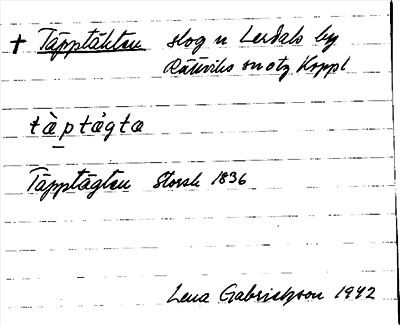 † Täpptäkten skog n Leidals by
Rättviks sn otg Koppl
tàptágta
Täpptägten Storsk 1836
Lena Gabrielsson 1942